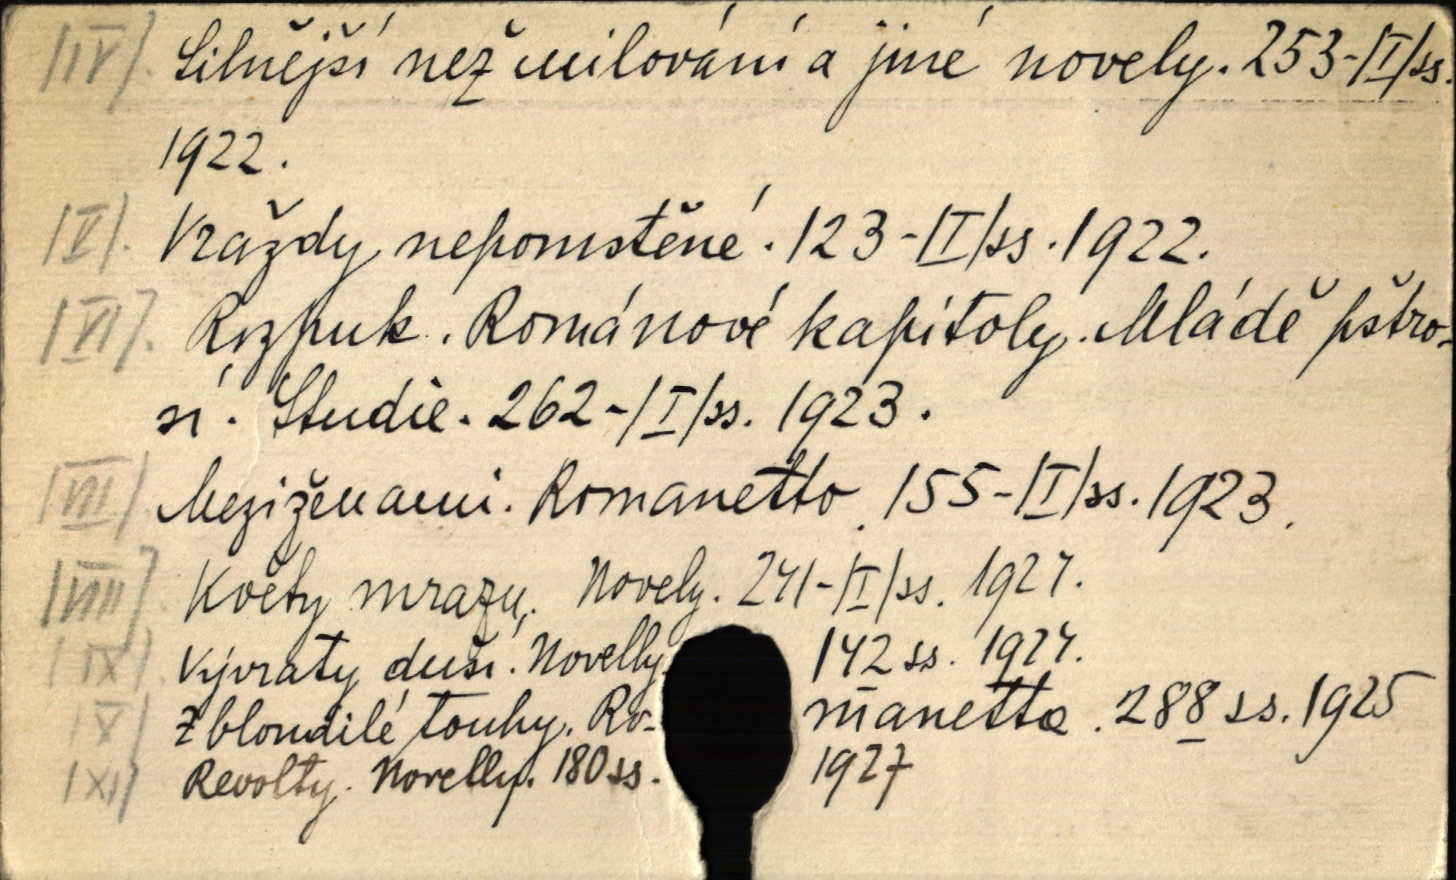 /IV/. Silnější než milování a jiné novely. 253-/I/ss.
1922.
/V/. Vraždy nepomstěné. 123-/I/ss. 1922.
/VI/. Rozpuk. Románové kapitoly. Mládě pštro-
sí. Studie. 262-/I/ss. 1923.
/VII/ Mezi ženami. Romanetto. 155-/I/ss. 1923.
/VIII/. Květy mrazu. Novely. 241-/I/ss. 1924.
/IX/ Vývraty duší. Novelly. 142 ss. 1924.
/X/ Zbloudilé touhy. Ro- manetta. 288 ss. 1925
/XI/ Revolty. Novelly. 180 ss. 1927